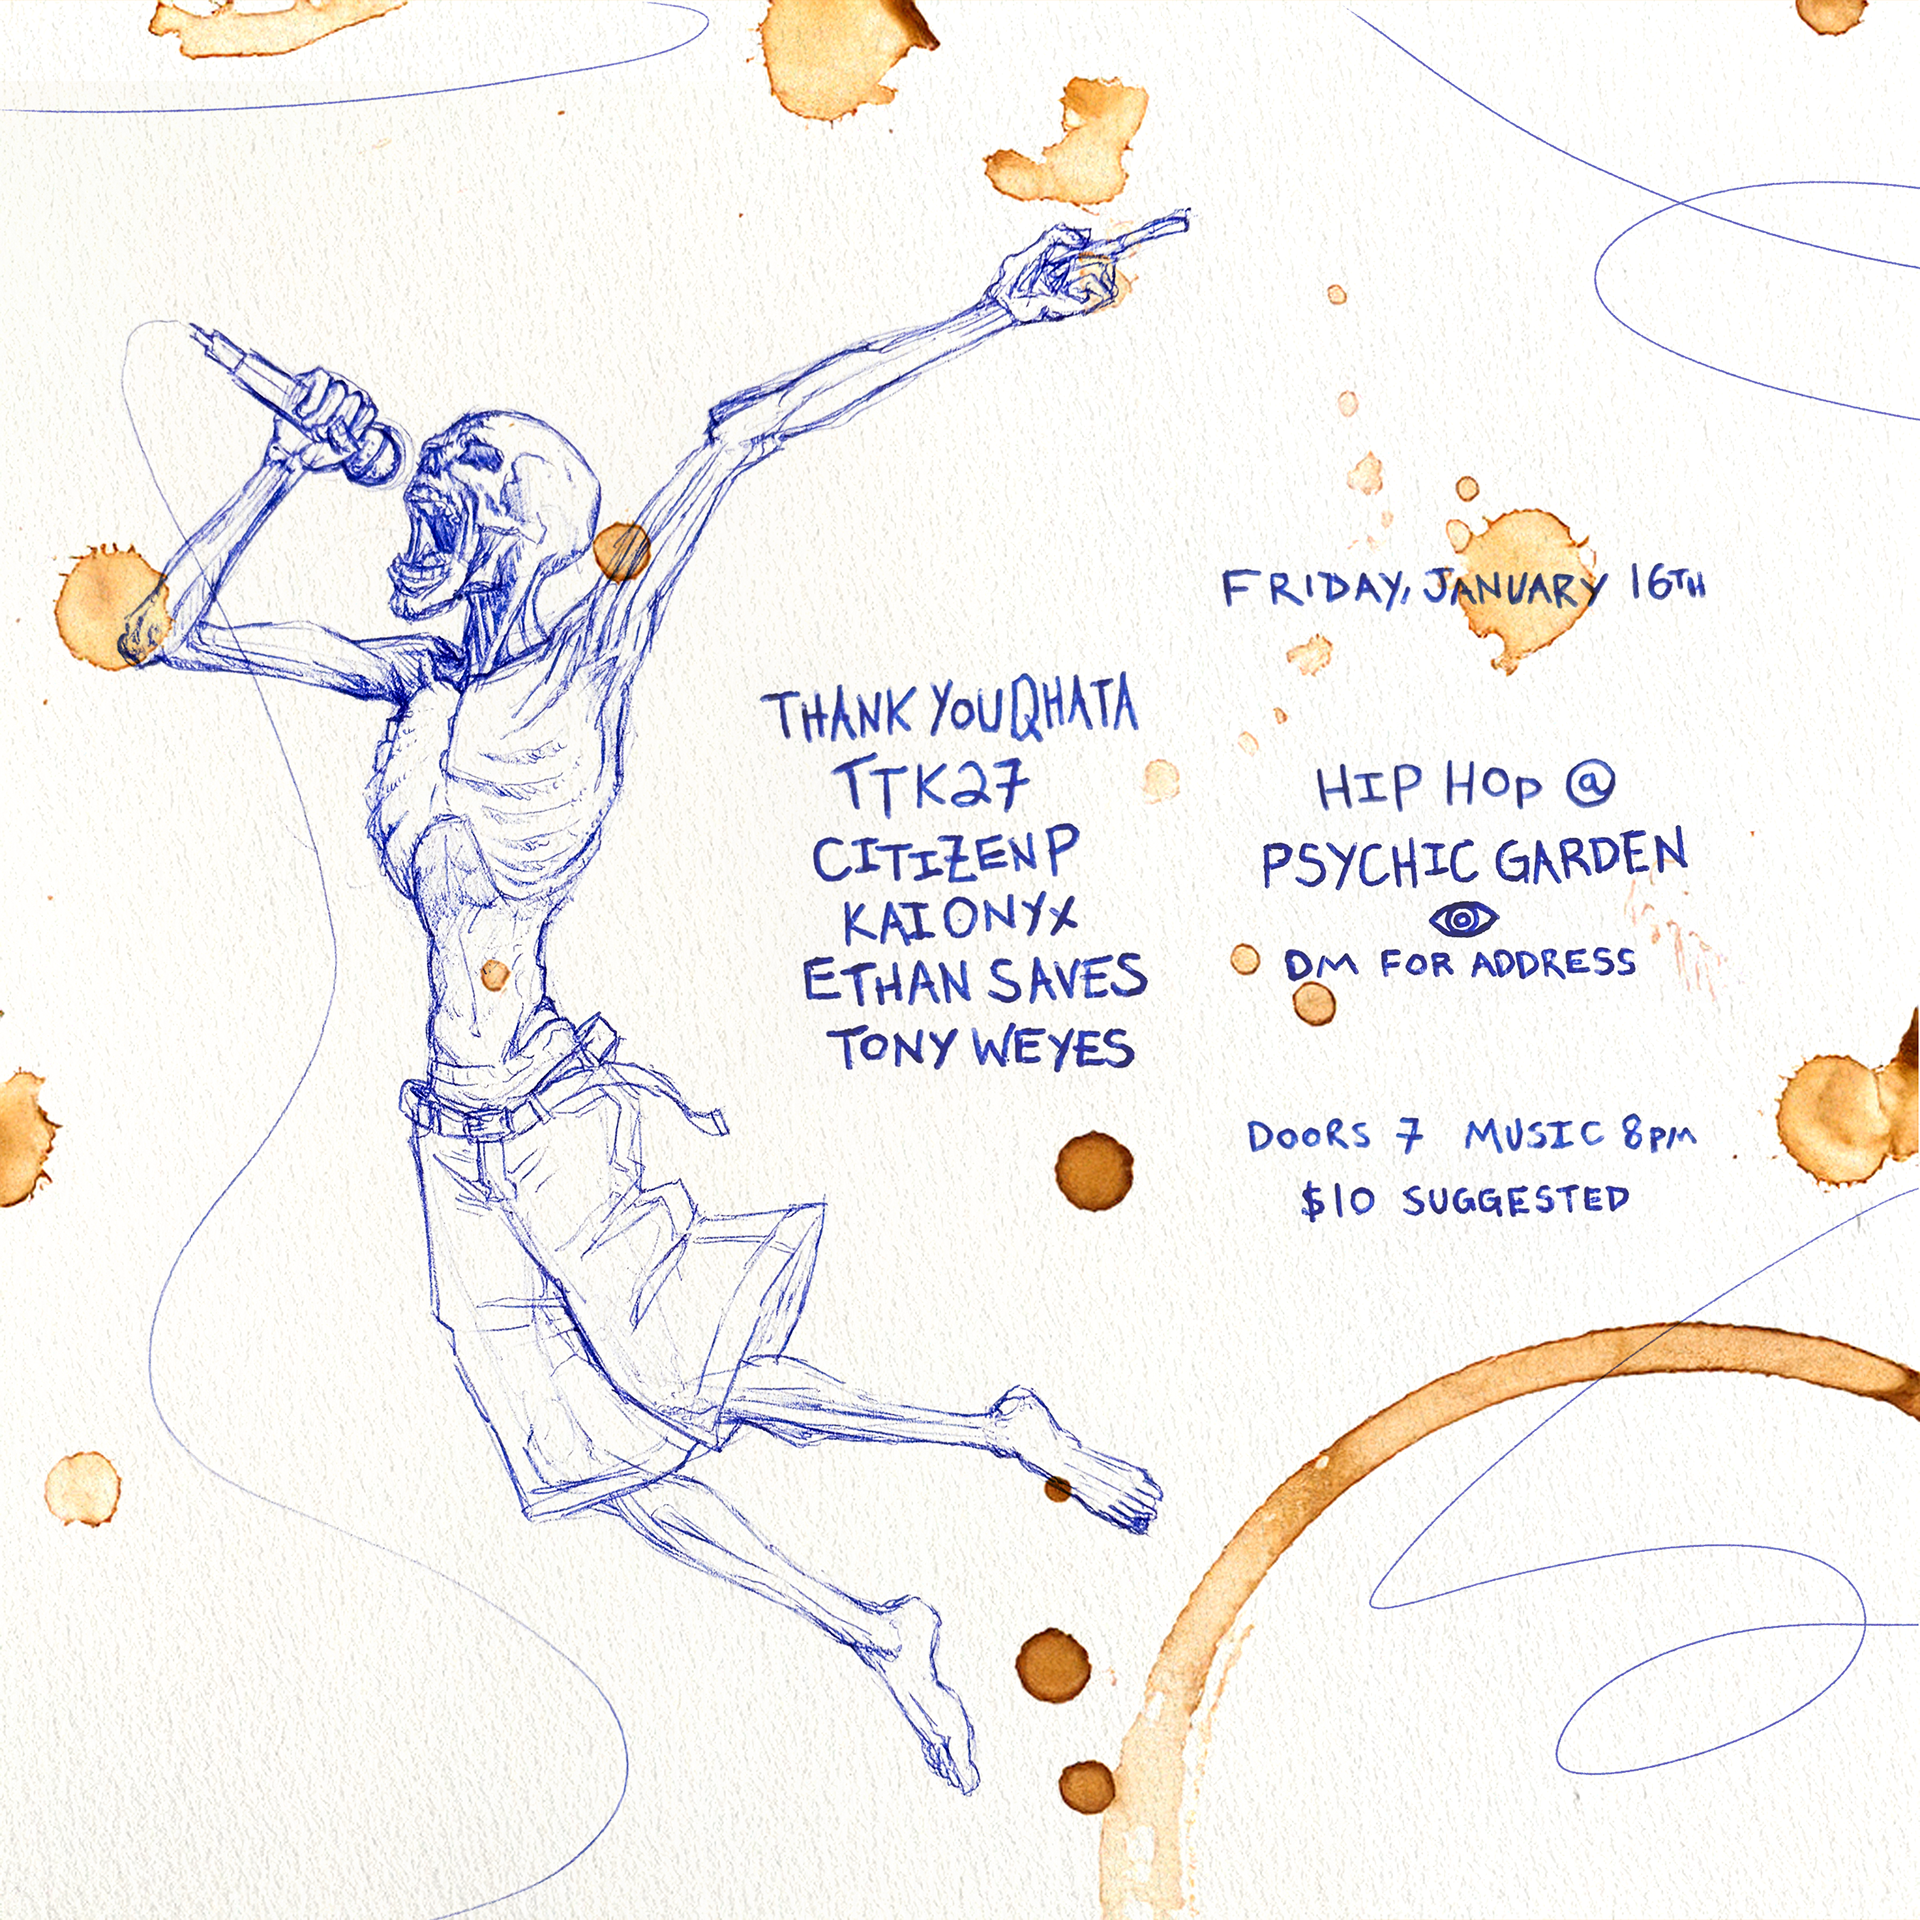 FRIDAY, JANUARY 16TH
THANK YOU QHATA
TTK27
CITIZEN P
KAI ONYX
ETHAN SAVES
TONY WEYES
HIP HOP @
PSYCHIC GARDEN
DM FOR ADDRESS
DOORS 7 MUSIC 8PM
$10 SUGGESTED